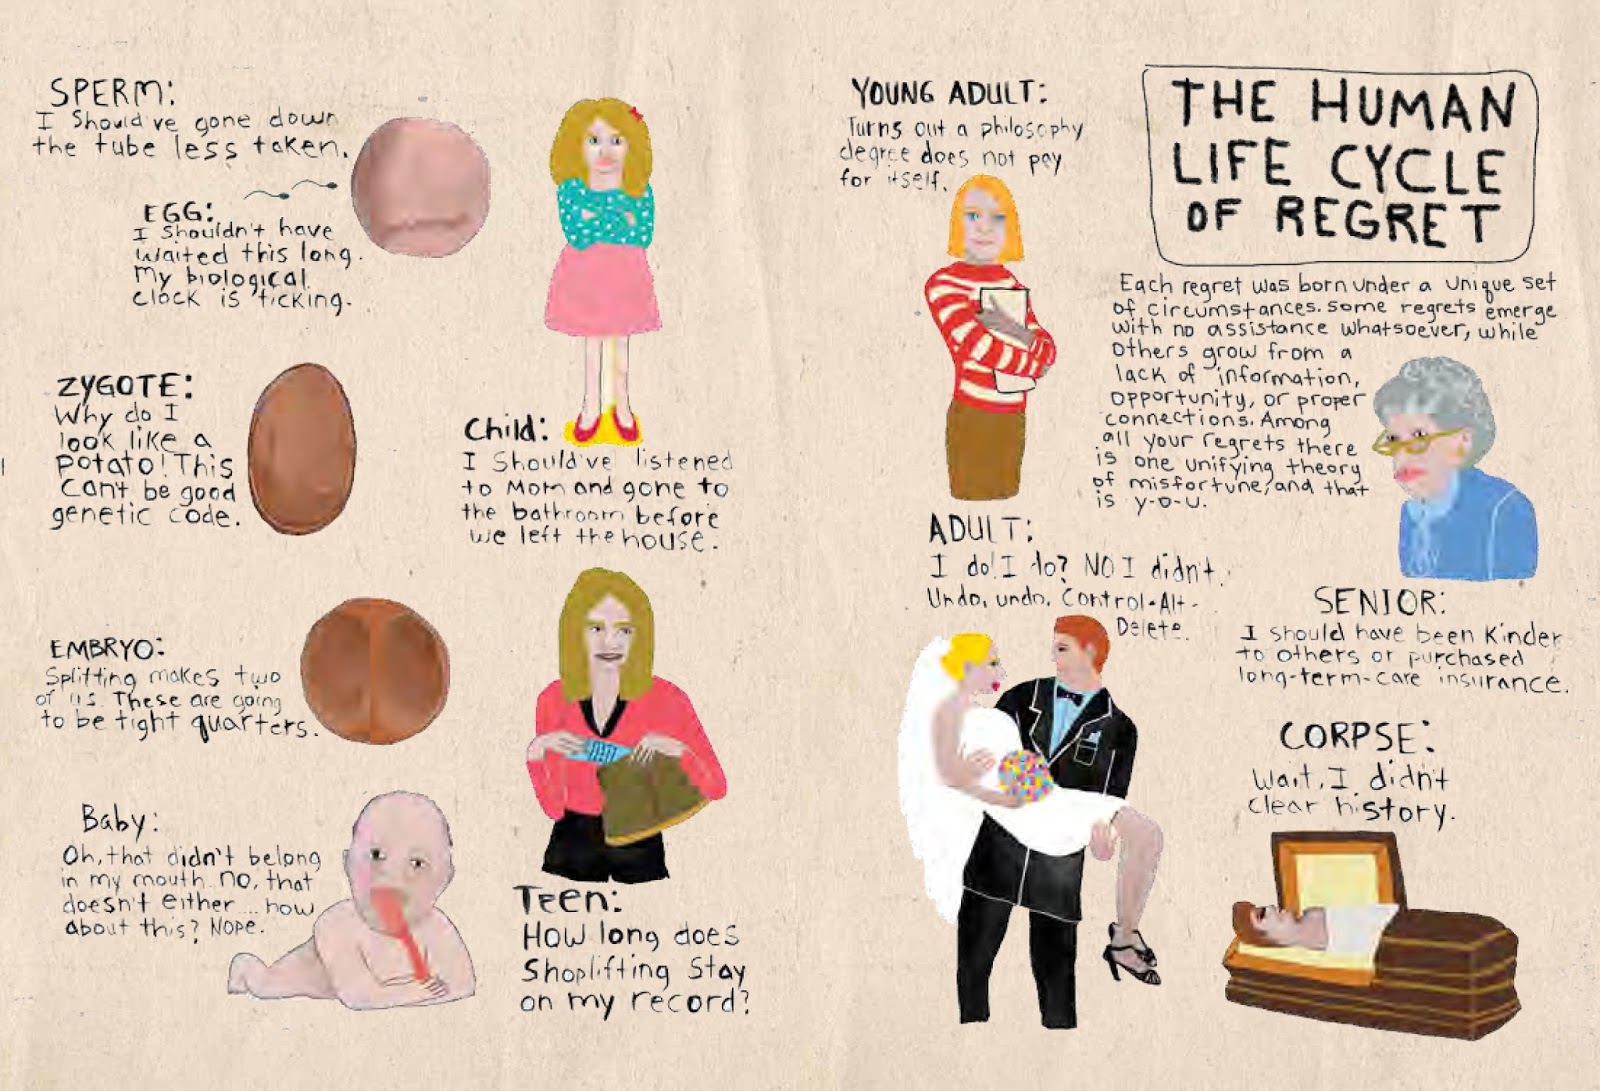 SPERM:
I Should've gone down
the tube less taken.
EGG:
I Shouldn't have
waited this long.
My biological
clock is ticking.
ZYGOTE:
Why do I
look like a
potato! This
can't be good
genetic code.
EMBRYO:
Splitting makes two
of us. These are going
to be tight quarters.
Baby:
Oh, that didn't belong
in my mouth no, that
doesn't either... how
about this? Nope.
Child:
I Should've listened
to Mom and gone to
the bathroom before
we left the house.
Teen:
How long does
Shoplifting Stay
on my record?
YOUNG ADULT:
Turns out a philosophy
degree does not pay
for itself.
ADULT:
I do! I do? NO I didn't.
Undo, undo. Control-Alt-
Delete.
THE HUMAN
LIFE CYCLE
OF REGRET
Each regret was born under a unique set
of circumstances. Some regrets emerge
with no assistance whatsoever, while
others grow from a
lack of information,
opportunity, or proper
connections. Among
all your regrets there
is one unifying theory
of misfortune, and that
is y-o-u.
SENIOR:
I should have been kinder
to others or purchased
long-term-care insurance.
CORPSE:
Wait, I didn't
clear history.